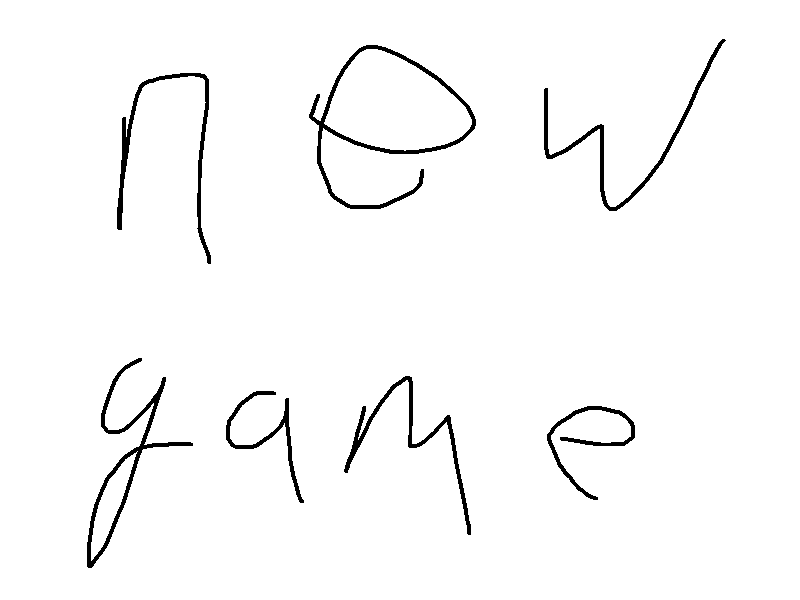 new
game